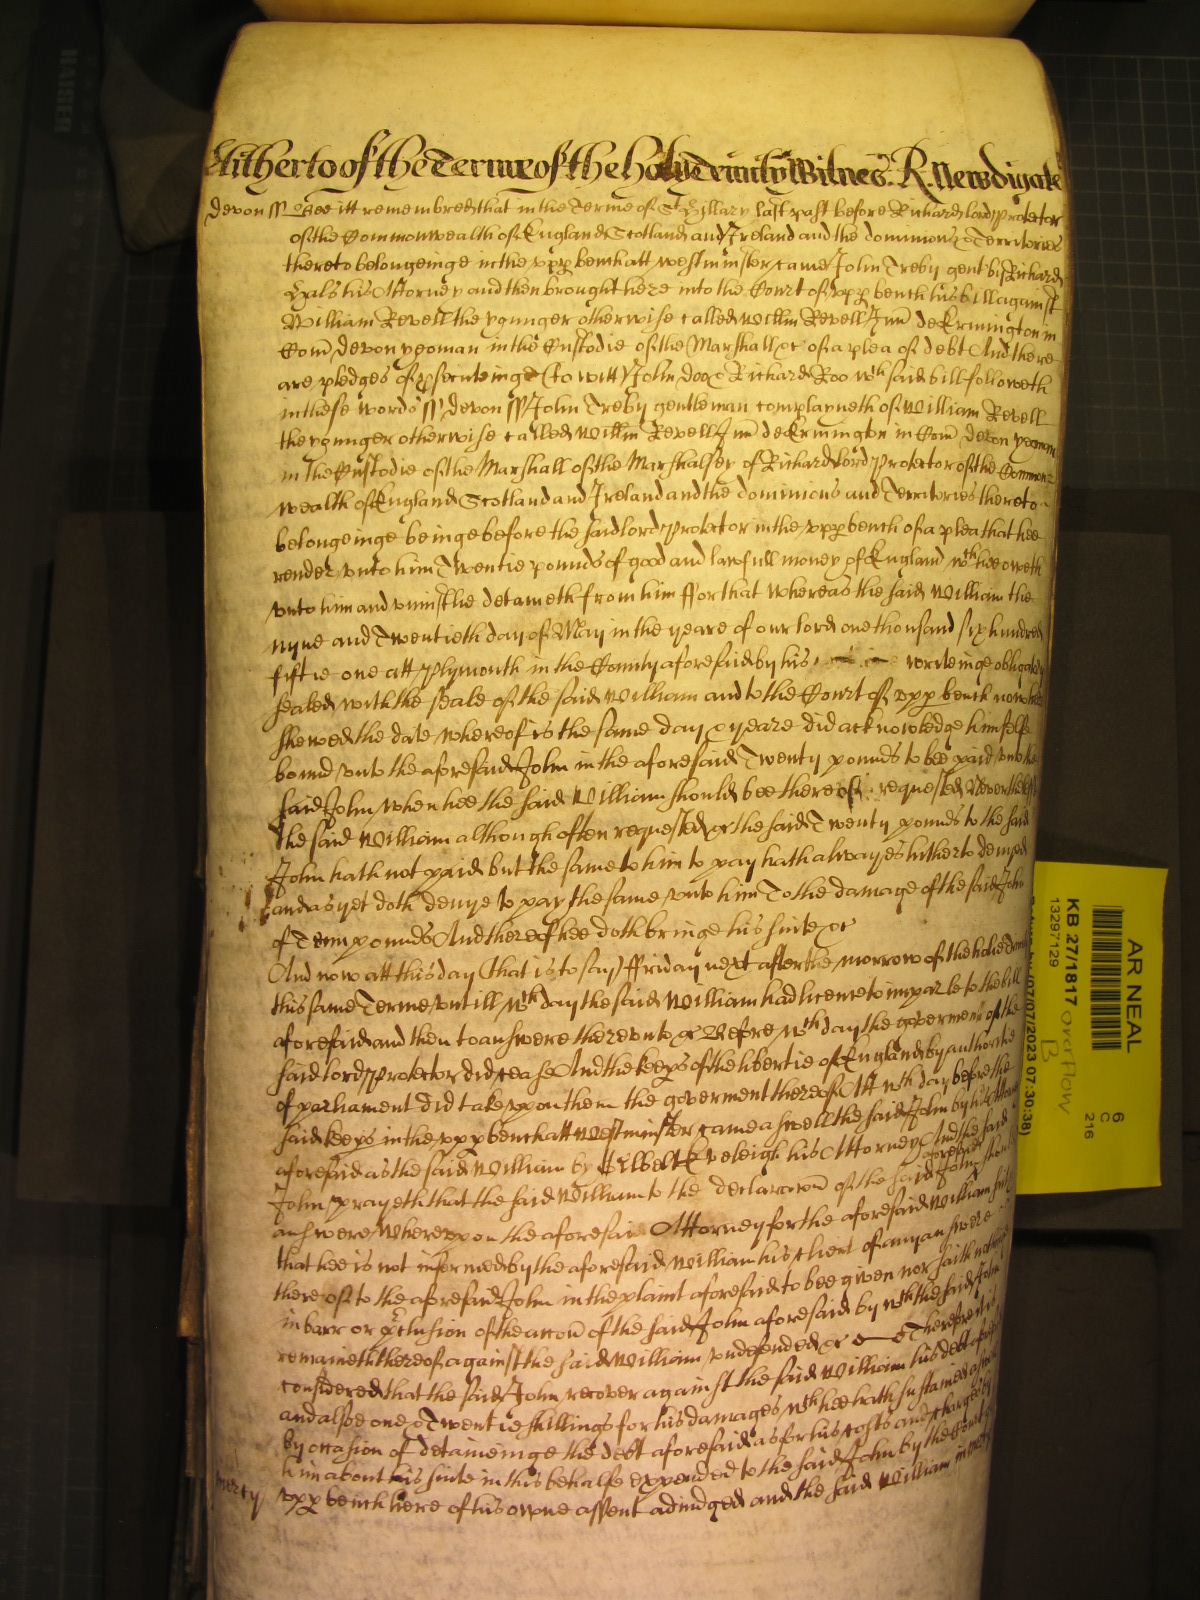 Hitherto of the Terme of the Holy Trinity Witnes: R. Newdigate
Devon ss Bee itt remembred that in the Terme of St Hillary last past before Richard lord Protector
of the Commonwealth of England Scotland and Ireland and the dominions & Territories
thereto belongeinge in the upp bench att westminster came John Treby gent by Richard
Hals his Attorney and then brought here into the Court of upp bench his bill against
William Revell the younger otherwise called Willm Revell Jun de Ermington in
Com Devon yeoman in the Custodie of the Marshall &c of a plea of debt And there
are pledges of prsecuteinge (to witt) John Doo & Richard Roo wch said bill followeth
in these words ss Devon ss John Treby gentleman complayneth of William Revell
the younger otherwise called Willm Revell Jun de Ermington in Com Devon yeoman
in the Custodie of the Marshall of the Marshalsey of Richard lord Protector of the Common=
wealth of England Scotland and Ireland and the dominions and Territories thereto
belongeinge beinge before the said lord Protector in the upp bench of a plea that hee
render unto him Twentie pounds of good and lawfull money of England wch hee oweth
unto him and uniustlie detaineth from him ffor that whereas the said William the
nyne and Twentieth day of May in the yeare of our lord one thousand six hundred
fiftie one att Plymouth in the County aforesaid by his writeinge obligatory
sealed with the seale of the said William and to the Court of upp bench now here
shewed the date whereof is the same day & yeare did acknowledge himselfe
bound unto the aforesaid John in the aforesaid Twenty pounds to bee paid unto the
said John when hee the said William should bee thereof requested Neverthelesse
the said William although often requested &c the said Twenty pounds to the said
John hath not paid but the same to him to pay hath alwayes hitherto denyed
and as yet doth denye to pay the same unto him To the damage of the said John
of Tenn pounds And thereof hee doth bringe his suite &c
And now att this day (that is to say) ffriday next after the morrow of the holie Trinity
this same Terme untill wch day the said William had licence to imparle to the bill
aforesaid and then to answere thereunto &c Before wch day the goverment of the
said lord Protector did cease And the keeps of the libertie of England by authoritie
of parliament did take uppon them the goverment thereof Att wch day before the
said keeps in the upp bench att Westminster came aswell the said John by his Attorney
aforesaid as the said William by Gilbert Eveleigh his Attorney And the said
John prayeth that the said William to the declaracon of the said John aforesaid should
answere Whereuppon the aforesaid Attorney for the aforesaid William saith
that hee is not informed by the aforesaid William his Client of any answere
thereof to the aforesaid John in the plaint aforesaid to bee given nor saith nothing
in barr or preclusion of the accon of the said John aforesaid by wch the said John
remaineth thereof against the said William undefended &c Therefore it is
considered that the said John recover against the said William his debt aforesaid
and alsoe one & Twentie shillings for his damages wch hee hath sustained aswell
by occasion of detaineinge the debt aforesaid as for his costs and charges by
him about his suite in this behalfe expended to the said John by the Court of
upp bench here of his owne assent adiudged and the said William in mercy
mercy
AR NEAL
KB 27/1817 overflow
B
13297129
6
C
216
(07/07/2023 07:30:38)